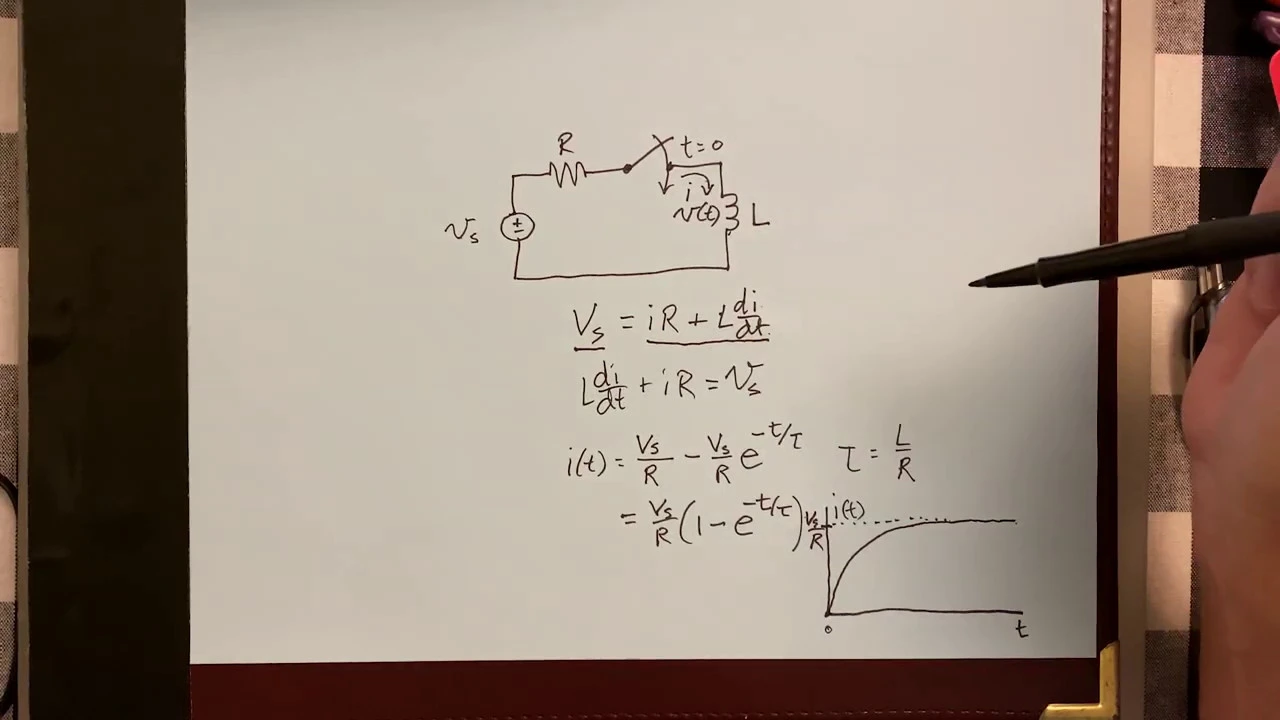 R
t=0
i
v(t)
L
Vs
±
Vs = iR + L di/dt
L di/dt + iR = Vs
i(t) = Vs/R - Vs/R e^-t/τ τ = L/R
= Vs/R (1 - e^-t/τ)
i(t)
Vs/R
0
t